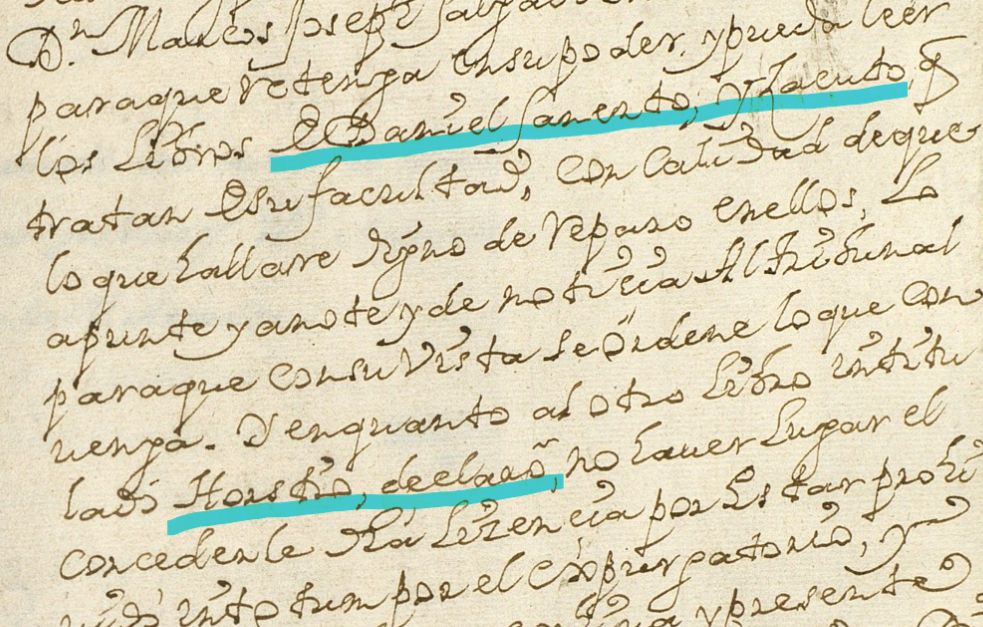 Dn. Marcos Joseph Salgado
paraque retenga ensupoder, ypueda leer
los libros De Daniel Sanerto, Y Zacuto, q
tratan De su facultad, con calidad deque
lo que hallare digno de reparo enellos, Lo
apunte yanote y de noticia Al tribunal
paraque consu Vista se Ordene lo que con
venga. Y enquanto al otro libro intitu
lado Horstio, declarõ, no haver lugar el
concederle dha lizencia por Estar prohi
vido in totum por el expurgatorio, y
ypresente